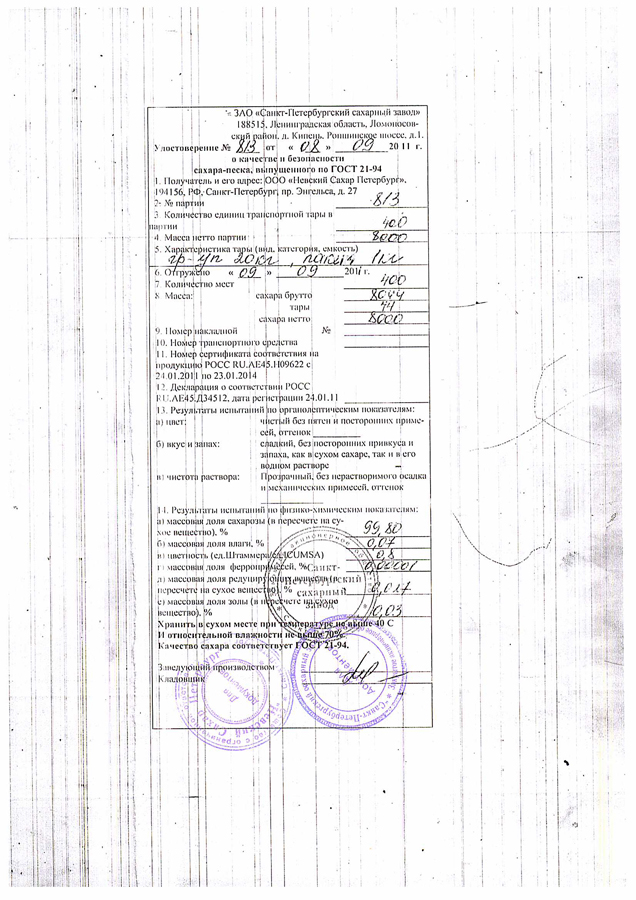 ЗАО «Санкт-Петербургский сахарный завод»
188515, Ленинградская область, Ломоносов-
ский район, д. Кипень, Ропшинское шоссе, д.1.
Удостоверение № 813 от « 08 » 09 2011 г.
о качестве и безопасности
сахара-песка, выпущенного по ГОСТ 21-94
1. Получатель и его адрес: ООО «Невский Сахар Петербург»,
194156, РФ, Санкт-Петербург, пр. Энгельса, д. 27
2- № партии 813
3. Количество единиц транспортной тары в
партии 400
4. Масса нетто партии 8000
5. Характеристика тары (вид, категория, емкость)
гр-уп 20кг, пакеты 1кг
6. Отгружено « 09 » 09 2011 г.
7. Количество мест 400
8. Масса: сахара брутто 8044
тары 44
сахара нетто 8000
9. Номер накладной №
10. Номер транспортного средства
11. Номер сертификата соответствия на
продукцию РОСС RU.АЕ45.Н09622 с
24.01.2011 по 23.01.2014
12. Декларация о соответствии РОСС
RU.АЕ45.Д34512, дата регистрации 24.01.11
13. Результаты испытаний по органолептическим показателям:
а) цвет: чистый без пятен и посторонних приме-
сей, оттенок
б) вкус и запах: сладкий, без посторонних привкуса и
запаха, как в сухом сахаре, так и в его
водном растворе
в) чистота раствора: Прозрачный, без нерастворимого осадка
и механических примесей, оттенок
14. Результаты испытаний по физико-химическим показателям:
а) массовая доля сахарозы (в пересчете на су-
хое вещество), % 99,80
б) массовая доля влаги, % 0,07
в) цветность (ед.Штаммера/ед.ICUMSA) 0,8
г) массовая доля ферропримесей, % 0,00001
д) массовая доля редуцирующих веществ (в
пересчете на сухое вещество), % 0,017
е) массовая доля золы (в пересчете на сухое
вещество), % 0,03
Хранить в сухом месте при температуре не выше 40 С
И относительной влажности не выше 70%.
Качество сахара соответствует ГОСТ 21-94.
Заведующий производством
Кладовщик
Санкт-
Петербургский
сахарный
завод
Для
документов
Для
документов